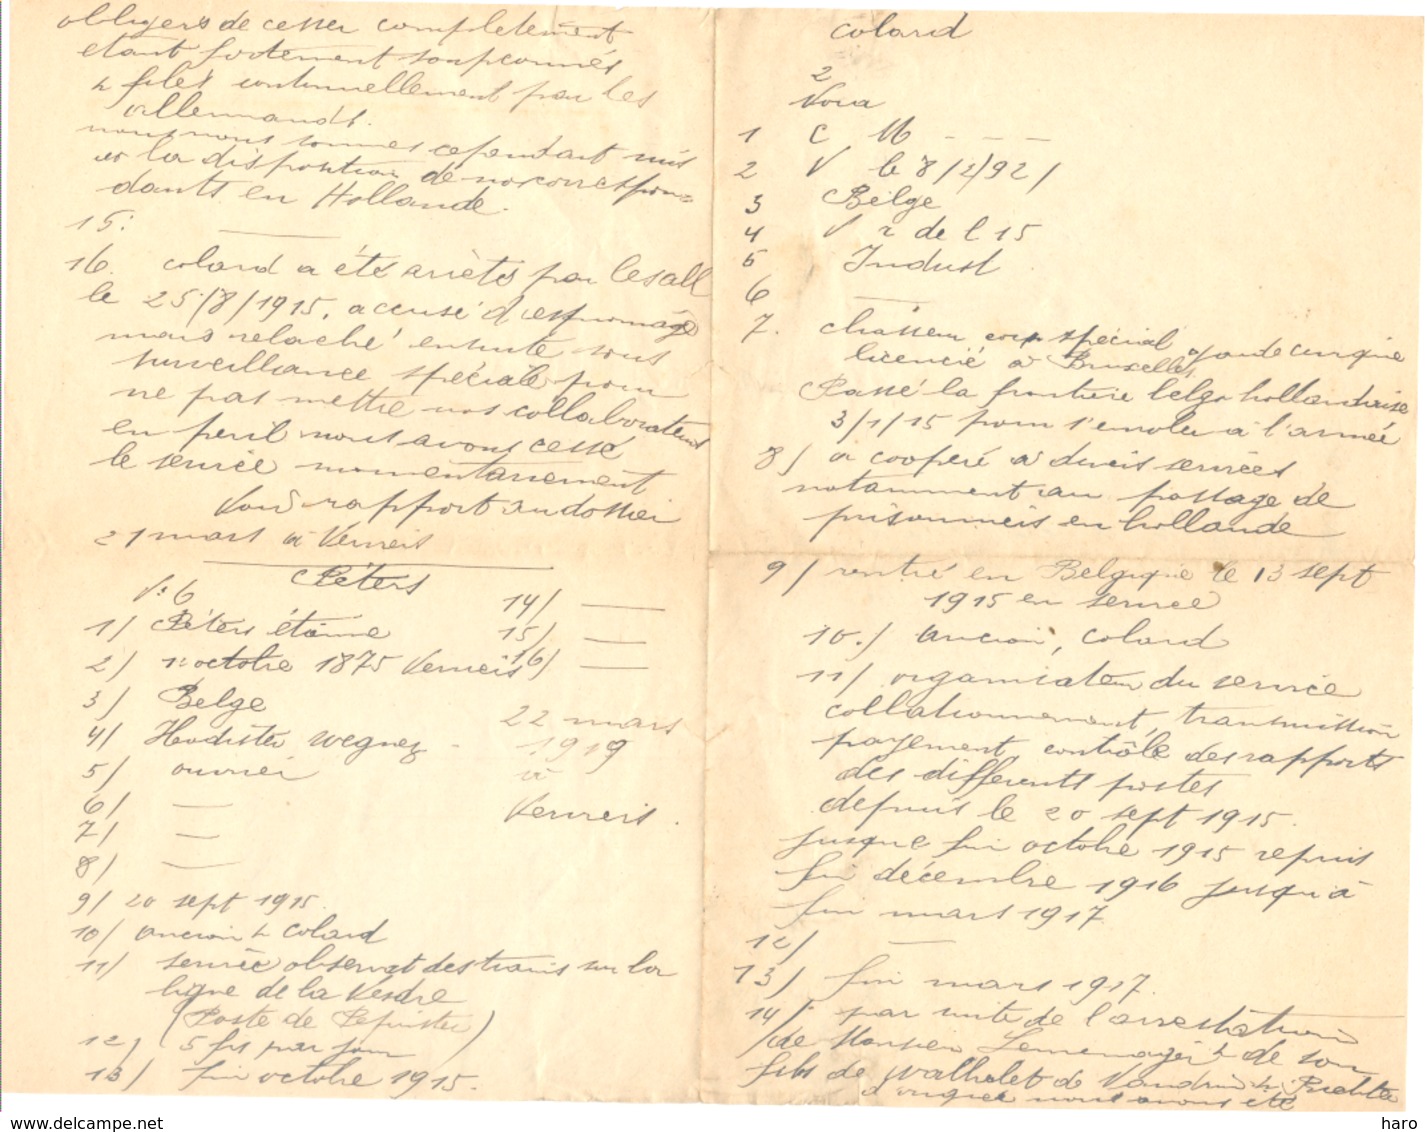 colard
2
1 C M
2 V le 8/2/92
3 Belge
4 V r de l 15
5 Indust
6 —
7. chasseur spécial
licencié à Bruxelles
Passé la frontière belgo hollandaise
3/1/15 pour s'enroler à l'armée
8/ a cooperé a divers services
notamment au passage de
prisonniers en hollande
9/ rentré en Belgique le 13 sept
1915 en service
10./ ancion, colard
11/ organisateur du service
collationnement, transmission
payement, contrôle des rapports
des differents postes
depuis le 20 sept 1915.
jusque fin octobre 1915 repris
fin décembre 1916 jusqu'à
fin mars 1917
12/ —
13/ fin mars 1917.
14/ par suite de l'arrestation
de Monsieur & de son
fils de & de
donque nous avons été
obligers de cesser completement
etant fortement soupconnés
& filés continuellement par les
allemands.
nous nous sommes cependant mis
a la disposition de nos correspon=
dants en Hollande.
15: —
16. colard a été arrèté par les all
le 25/8/1915, accusé d'espionage
mais relaché ensuite sous
surveillance spéciale pour
ne pas mettre nos collaborateurs
en peril nous avons cessé
le service momentanement
Voir rapport au dossier
21 mars à Verviers
Péters
V: 6
1/ Péters étienne
2/ 1 octobre 1875 Verviers
3/ Belge
4/ Hodister Wegnez
5/ ouvrier
6/ —
7/ —
8/ —
9/ 20 sept 1915.
10/ ancion & colard
11/ service observat des trains sur la
ligne de la Vesdre
(Poste de Pepinster)
12/ 5 frs par jour
13/ fin octobre 1915.
14/ —
15/ —
16/ —
22 mars
1919
à
Verviers.
haro